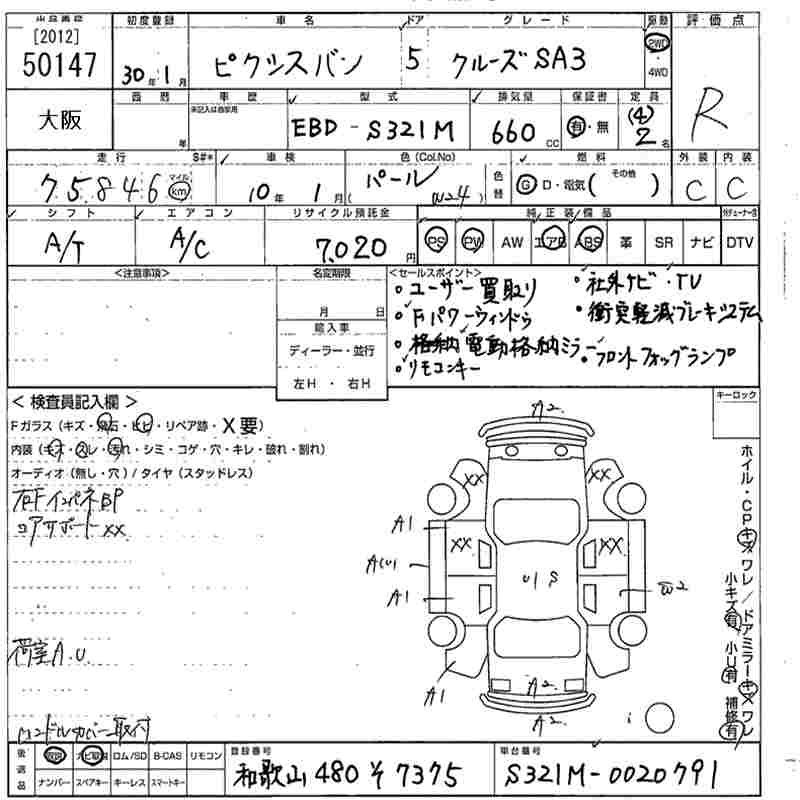 [2012] 初度登録 車名 ドア グレード 駆動 評価点
50147 30年1月 ピクシスバン 5 クルーズSA3 2WD 4WD R
大阪 西暦 年 車歴 未記入は自家用 型式 排気量 保証書 定員
EBD-S321M 660cc 有・無 (4) 2名
走行 S#* 車検 色(Col.No) 色替 燃料 外装 内装
75846 マイル km 10年1月 パール (W24) G D・電気( その他 ) C C
シフト エアコン リサイクル預託金 純正装備品
A/T A/C 7,020円 PS PW AW エアB ABS 革 SR ナビ DTV
<注意事項> 名変期限 <セールスポイント>
月 日
輸入車
ディーラー・並行
左H・右H
・ユーザー買取り ・社外ナビ・TV
・Fパワーウィンドゥ ・衝突軽減ブレーキシステム
・電動格納ミラー ・フロントフォッグランプ
・リモコンキー
<検査員記入欄> キーロック
Fガラス(キズ・飛石・ヒビ・リペア跡・X要)
内装(キズ・スレ・汚れ・シミ・コゲ・穴・キレ・破れ・割れ)
オーディオ(無し・穴)/タイヤ(スタッドレス)
右FインパネBP
コアサポートXX
荷室A.U
ハンドルカバー取付
A2
XX XX
A1 XX XX
A1 W2
U1 S
A1 A2
A2
ホイル・CPキズワレ/ドアミラーキズワレ
小キズ有 小U有 補修有
後送品 取説 ナビ取説 ロム/SD B-CAS リモコン 登録番号 車台番号
ナンバー スペアキー キーレス スマートキー 和歌山480そ7375 S321M-0020791